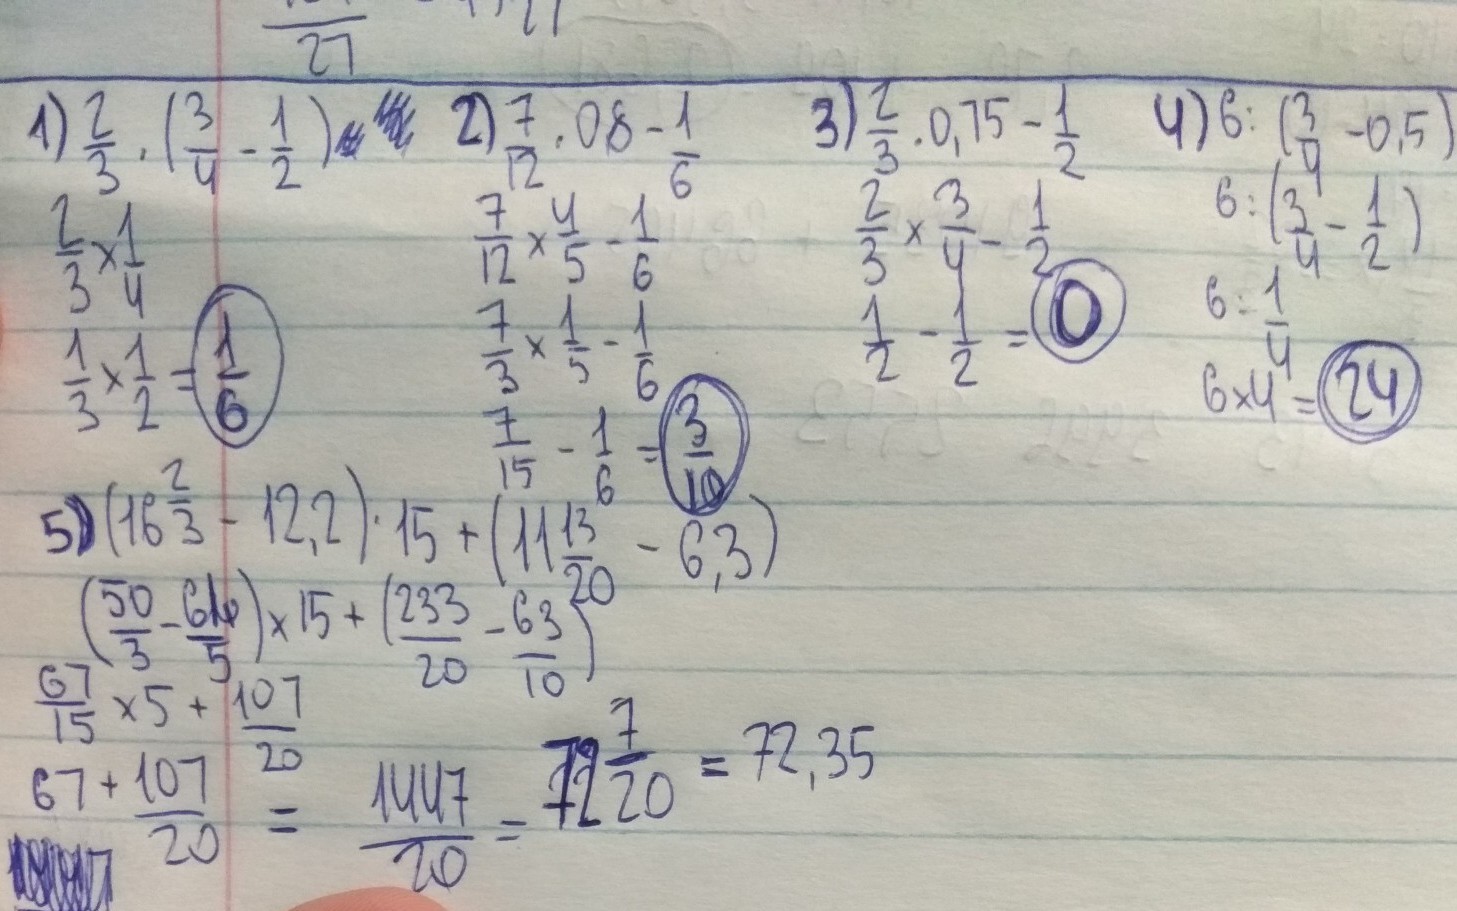 27
1) 2/3 · (3/4 - 1/2)
2/3 × 1/4
1/3 × 1/2 = 1/6
2) 7/12 · 08 - 1/6
7/12 × 4/5 - 1/6
7/3 × 1/5 - 1/6
7/15 - 1/6 = 3/10
3) 2/3 · 0,75 - 1/2
2/3 × 3/4 - 1/2
1/2 - 1/2 = 0
4) 6 : (3/4 - 0,5)
6 : (3/4 - 1/2)
6 : 1/4
6 × 4 = 24
5) (16 2/3 - 12,2) · 15 + (11 13/20 - 6,3)
(50/3 - 61/5) × 15 + (233/20 - 63/10)
67/15 × 5 + 107/20
67 + 107/20 = 1447/20 = 72 7/20 = 72,35